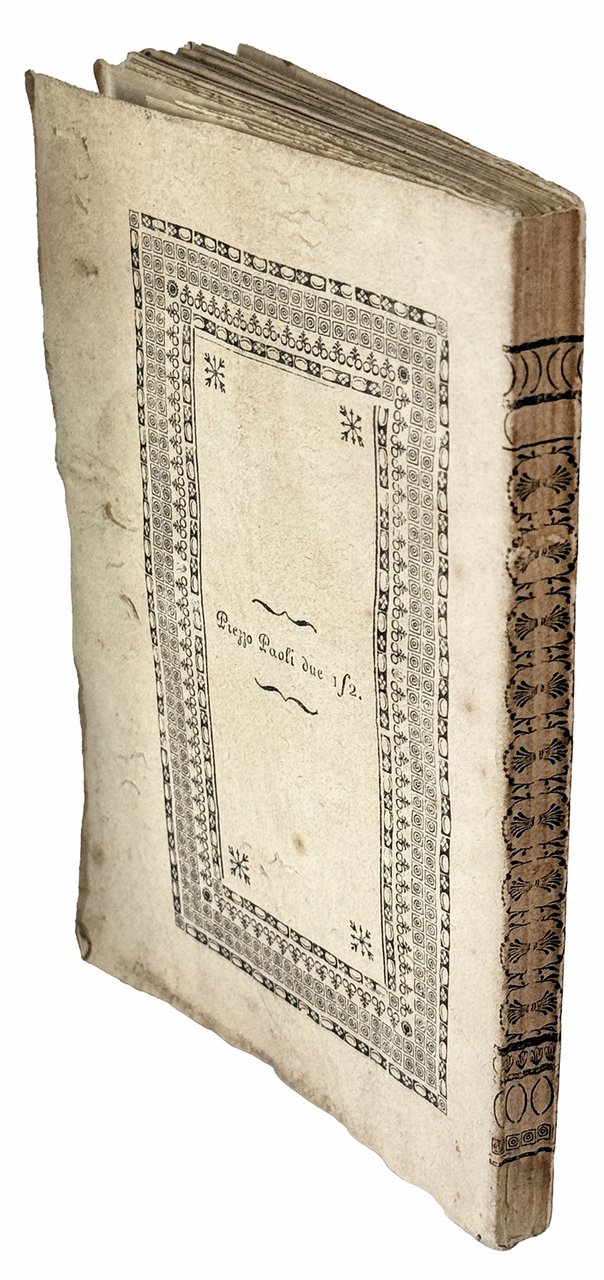 Prezzo Paoli due 1ſ2.